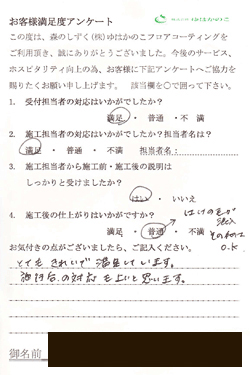 お客様満足度アンケート
この度は、森のしずく(株)ゆはかのこフロアコーティングを
ご利用頂き、誠にありがとうございました。今後のサービス、
ホスピタリティ向上の為、お客様に下記アンケートへご協力を
賜りたくお願い申し上げます。 該当欄を○で囲って下さい。
1. 受付担当者の対応はいかがでしたか?
満足 ・ 普通 ・ 不満
2. 施工担当者の対応はいかがでしたか?担当者名は?
満足 ・ 普通 ・ 不満 担当者名:
3. 施工担当者から施工前・施工後の説明は
しっかりと受けましたか?
はい ・ いいえ
4. 施工後の仕上がりはいかがですか?
満足 ・ 普通 ・ 不満
はけの毛が
混入
O.K.
お気付きの点がございましたら、ご記入ください。
とても きれいで 満足しています。
の対応も よいと思います。
御名前